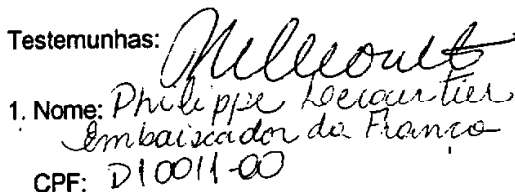 Testemunhas:
1. Nome: Philippe Lecourtier
Embaixador da França
CPF: D10011-00